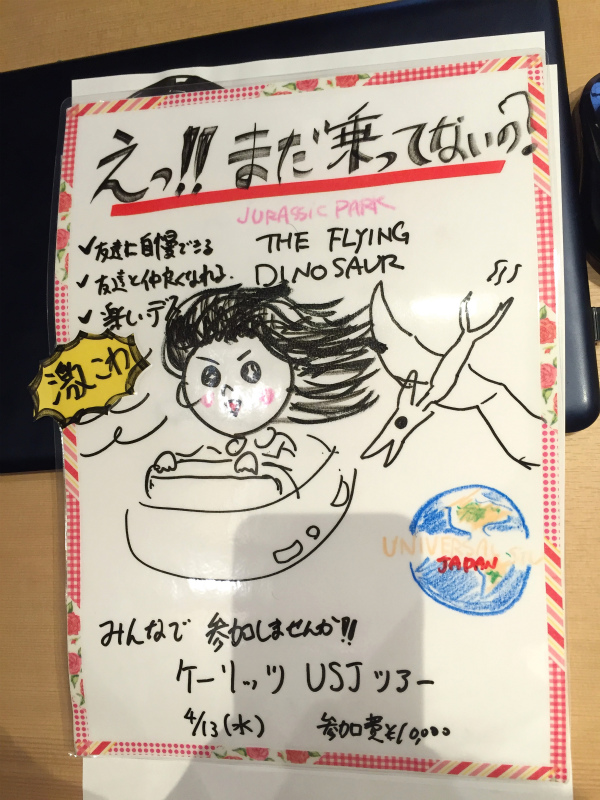 えっ!! まだ乗ってないの?
JURASSIC PARK
THE FLYING
DINOSAUR
✓友達に自慢できる
✓友達と仲良くなれる
✓楽しい
激こわ
UNIVERSAL
JAPAN
みんなで 参加しませんか!!
ケーリッツ USJツアー
4/13(水) 参加費¥10,000